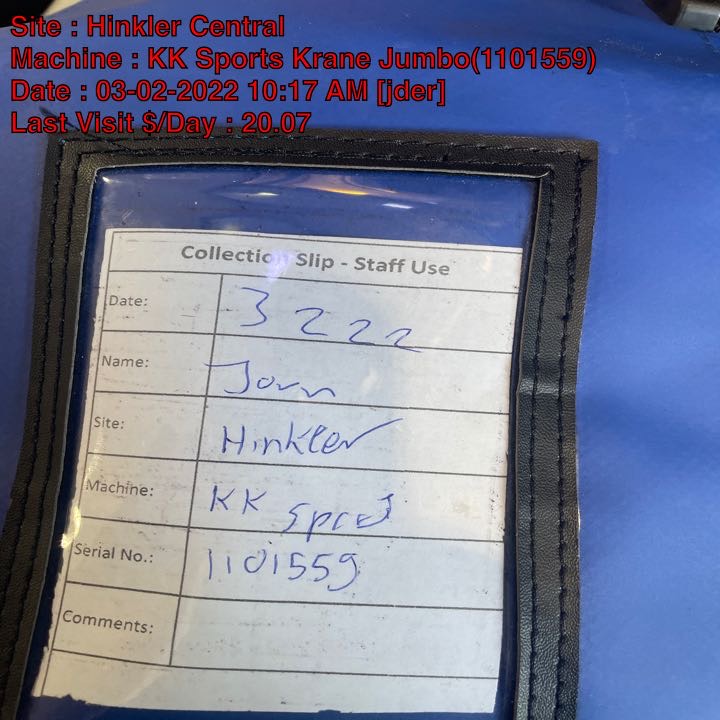 Site : Hinkler Central
Machine : KK Sports Krane Jumbo(1101559)
Date : 03-02-2022 10:17 AM [jder]
Last Visit $/Day : 20.07
Collection Slip - Staff Use
Date: 3 2 22
Name:
Site: Hinkler
Machine: KK
Serial No.: 1101559
Comments: